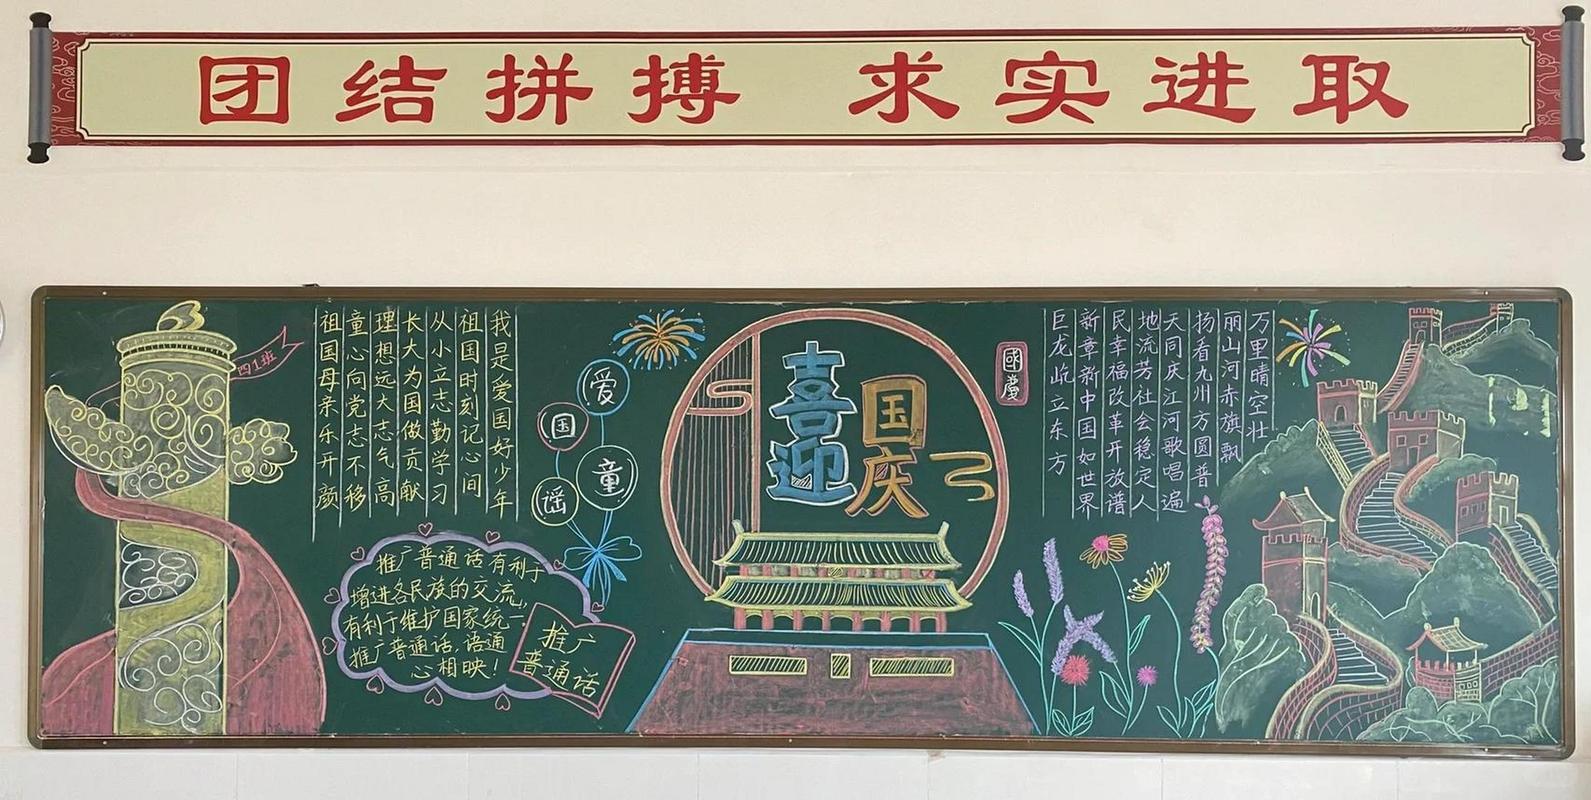 团结拼搏 求实进取
四1班
我是爱国好少年
祖国时刻记心间
从小立志勤学习
长大为国做贡献
理想远大志气高
童心向党志不移
祖国母亲乐开颜
爱
国
童
谣
推广普通话有利于
增进各民族的交流,
有利于维护国家统一,
推广普通话,语通
心相映!
推广
普通话
喜迎
国庆
國慶
万里晴空壮
丽山河赤旗飘
扬看九州方圆普
天同庆江河歌唱遍
地流芳社会稳定人
民幸福改革开放谱
新章新中国如世界
巨龙屹立东方